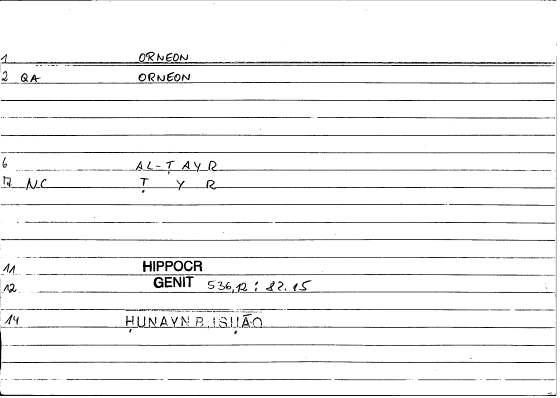 1 ORNEON
2 QA ORNEON
6 AL-ṬAYR
7 NC Ṭ Y R
11 HIPPOCR
12 GENIT 536,12 : 82.15
14 ḤUNAYN B. ISḤĀQ